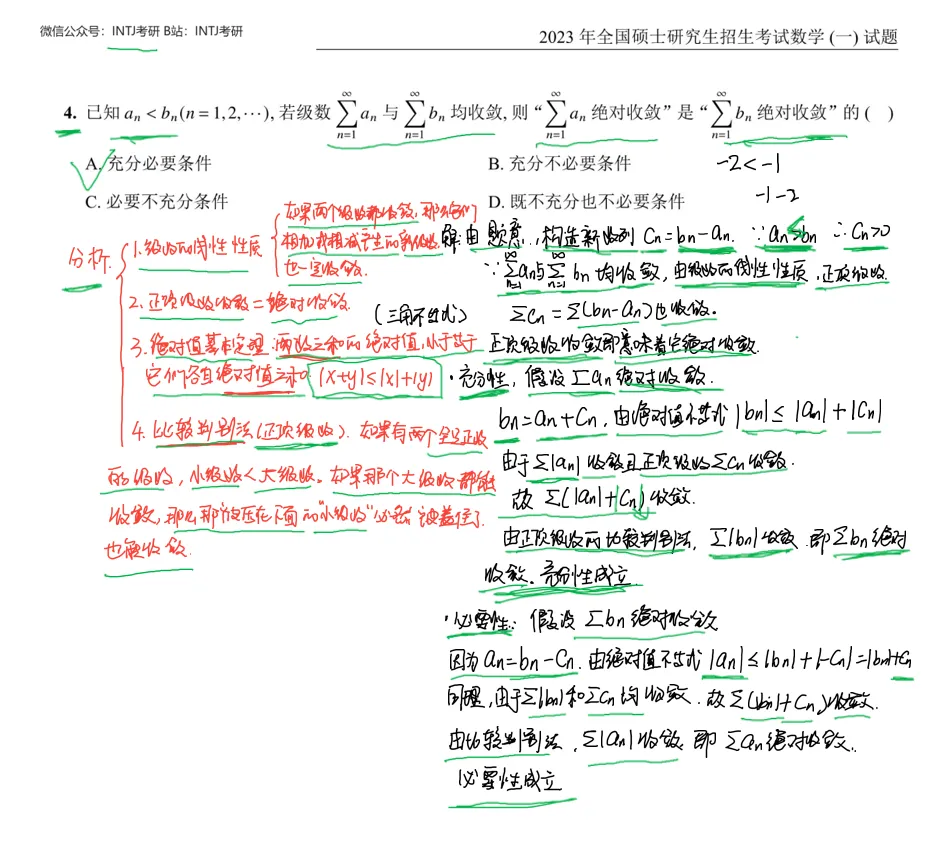 微信公众号：INTJ考研 B站：INTJ考研
2023 年全国硕士研究生招生考试数学 (一) 试题
4. 已知 aₙ < bₙ(n = 1,2,⋯), 若级数 ∑_{n=1}^{∞} aₙ 与 ∑_{n=1}^{∞} bₙ 均收敛, 则 “∑_{n=1}^{∞} aₙ 绝对收敛” 是 “∑_{n=1}^{∞} bₙ 绝对收敛” 的 ( )
A. 充分必要条件
B. 充分不必要条件
-2 < -1
C. 必要不充分条件
D. 既不充分也不必要条件
-1 -2
分析
1. 级数的线性性质
如果两个级数都收敛, 那么它们
相加或相减产生的新级数
也一定收敛.
2. 正项级数收敛 = 绝对收敛.
(三角不等式)
3. 绝对值基本定理. 两数之和的绝对值, 小于等于
它们各自绝对值之和. |x+y|≤|x|+|y|
4. 比较判别法 (正项级数). 如果有两个全是正数
的级数, 小级数 < 大级数. 如果那个大级数都能
收敛, 那么那个被压在下面的“小级数”必然被盖住了.
也能收敛.
解: 由题意, 构造新数列 Cn = bn - an. ∵ an > bn ∴ Cn>0
∵ ∑_{n=1}^{∞} an 与 ∑_{n=1}^{∞} bn 均收敛, 由级数的线性性质, 正项级数
∑Cn = ∑(bn-an) 也收敛.
正项级数收敛即意味着它绝对收敛.
· 充分性, 假设 ∑an 绝对收敛.
bn = an + Cn, 由绝对值不等式 |bn| ≤ |an| + |Cn|
由于 ∑|an| 收敛且正项级数 ∑Cn 收敛.
故 ∑(|an| + Cn) 收敛.
由正项级数的比较判别法, ∑|bn| 收敛. 即 ∑bn 绝对
收敛. 充分性成立
· 必要性: 假设 ∑bn 绝对收敛
因为 an = bn - Cn. 由绝对值不等式 |an| ≤ |bn| + |-Cn| = |bn|+Cn
同理, 由于 ∑|bn| 和 ∑Cn 均收敛. 故 ∑(|bn| + Cn) 收敛.
由比较判别法, ∑|an| 收敛. 即 ∑an 绝对收敛.
必要性成立